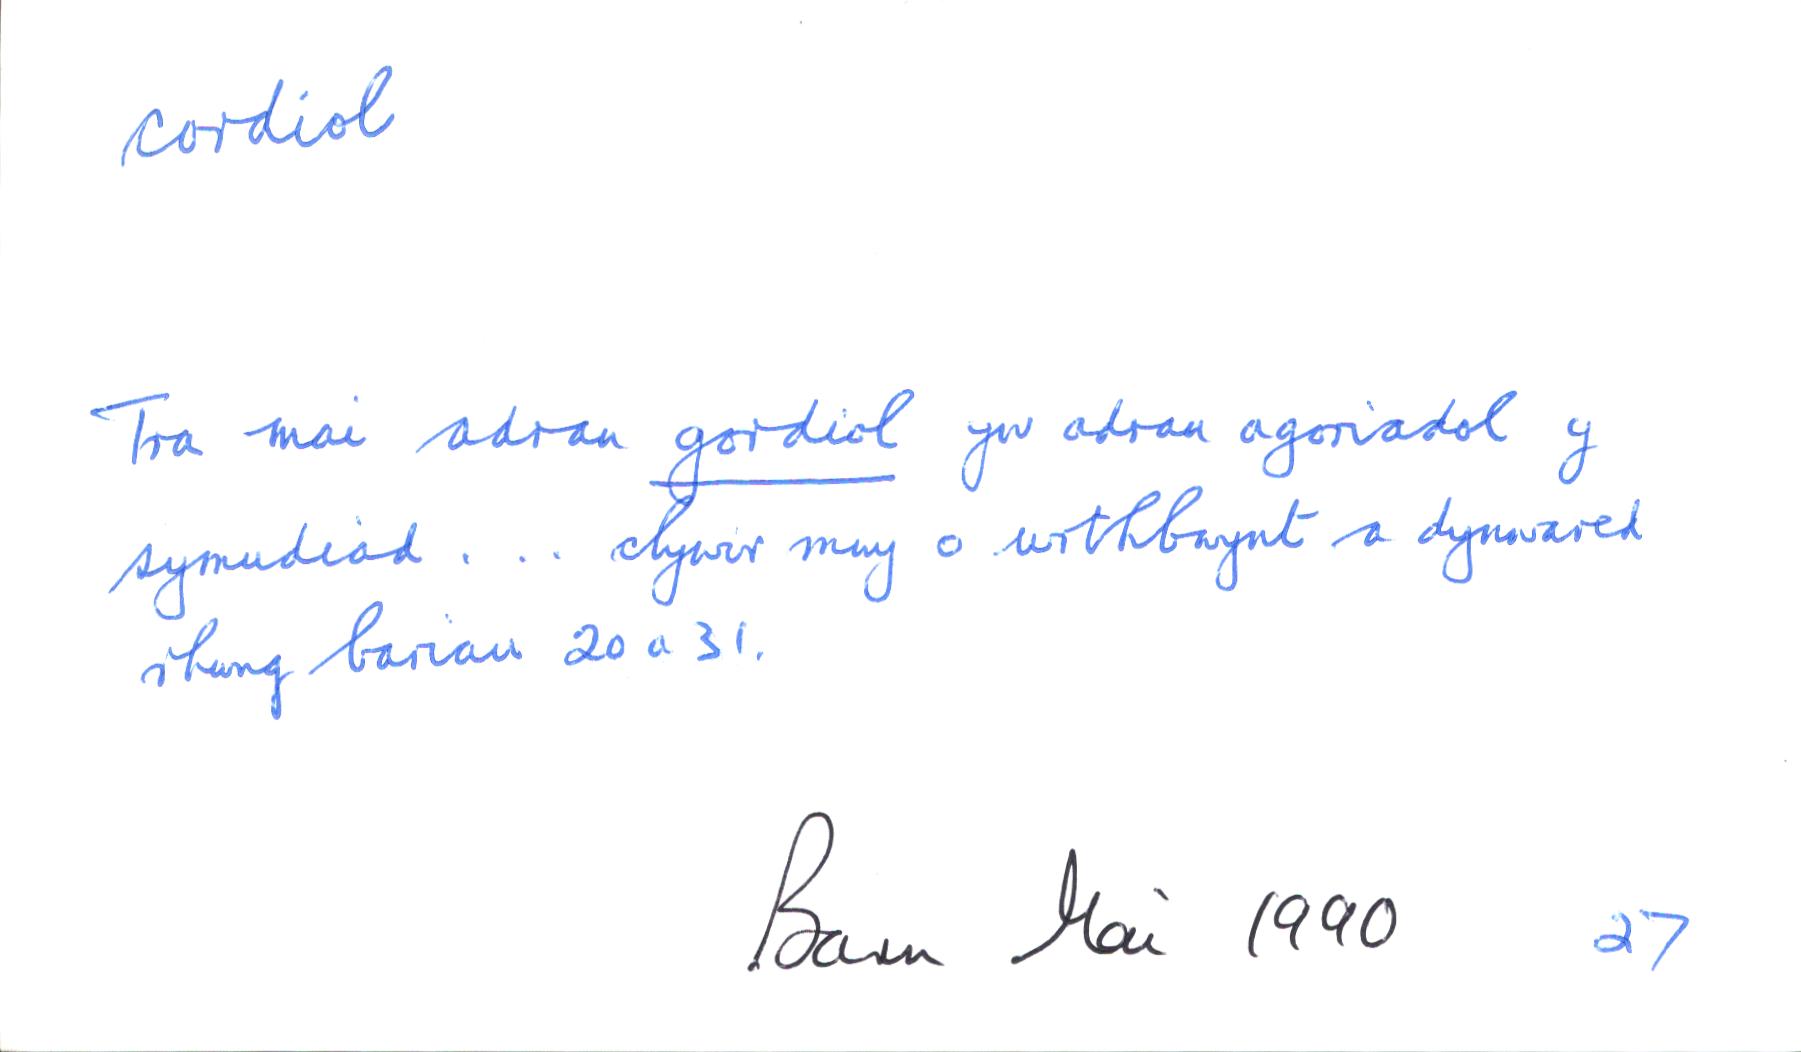 cordiol
Tra mai adran gordiol yw adran agoriadol y
symudiad . . . clywir mwy o wrthbwynt a dynwared
rhwng bariau 20 a 31.
Barn Mai 1990 27